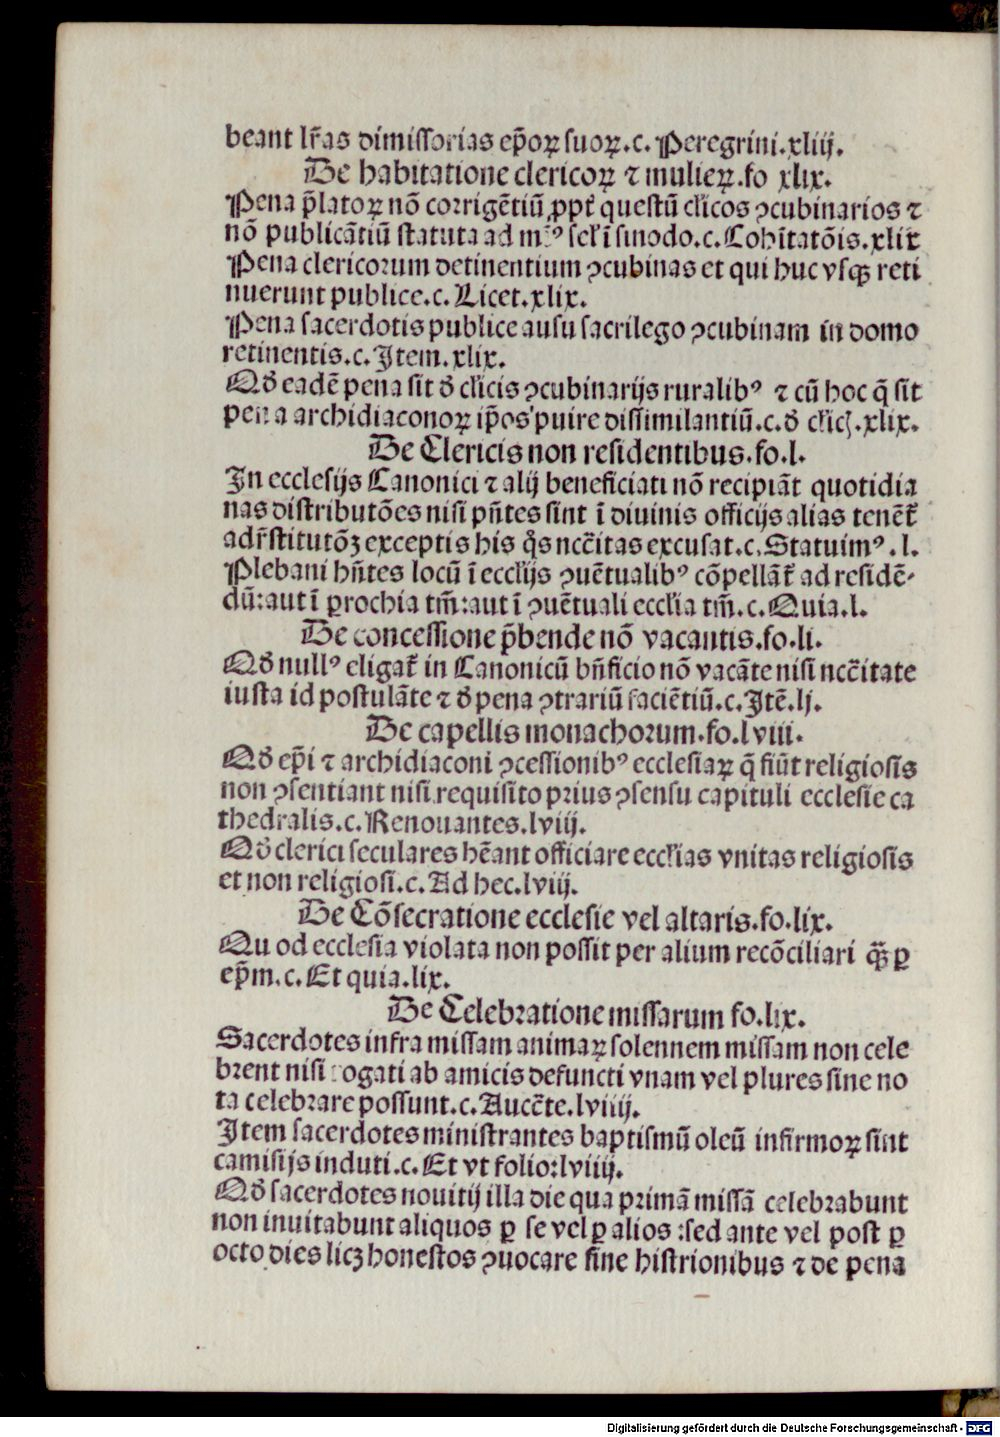 beant lr̃as dimissorias ep̃oꝝ suoꝝ.c. Peregrini.xliij.
De habitatione clericoꝝ ⁊ mulieꝝ.fo xlix.
Pena p̃latoꝝ nõ corrigẽtiũ ꝓpt̃ questũ cl̃icos ꝯcubinarios ⁊
nõ publicãtiũ statuta ad mꝰ scl̃ ĩ sinodo.c. Cohĩtatõis.xlix
Pena clericorum detinentium ꝯcubinas et qui huc vsqꝫ reti
nuerunt publice.c. Licet.xlix.
Pena sacerdotis publice ausu sacrilego ꝯcubinam in domo
retinentis.c. Item.xlix.
Qđ eadẽ pena sit đ cl̃icis ꝯcubinarijs ruralibꝰ ⁊ cũ hoc q̃ sit
pena archidiaconoꝝ ip̃os puire dissimilantiũ.c.đ cl̃ic.xlix.
De Clericis non residentibus.fo.l.
In ecclesijs Canonici ⁊ alij beneficiati nõ recipiãt quotidia
nas distributões nisi pñtes sint ĩ diuinis officijs alias tenẽt̃
ad r̃stitutõꝫ exceptis his q̃s ncc̃itas excusat.c.Statuimꝰ.l.
Plebani hñtes locũ ĩ eccl̃ijs ꝯuẽtualibꝰ cõpellãt̃ ad residẽ-
dũ:aut ĩ ꝑrochia tm̃:aut ĩ ꝯuẽtuali eccl̃ia tm̃.c.Quia.l.
De concessione p̃bende nõ vacantis.fo.li.
Qđ nullꝰ eligat̃ in Canonicũ bñficio nõ vacãte nisi ncc̃itate
iusta id postulãte ⁊ đ pena ꝯtrariũ faciẽtiũ.c.Itẽ.lj.
De capellis monachorum.fo.lviii.
Qđ ep̃i ⁊ archidiaconi ꝯcessionibꝰ ecclesiaꝝ q̃ fiũt religiosis
non ꝯsentiant nisi requisito prius ꝯsensu capituli ecclesie ca
thedralis.c.Renouantes.lviij.
Qđ clerici seculares hẽant officiare eccl̃ias vnitas religiosis
et non religiosi.c.Ad hec.lviij.
De Cõsecratione ecclesie vel altaris.fo.lix.
Qu od ecclesia violata non possit per alium recõciliari qꝫ̃ ꝑ
ep̃m.c.Et quia.lix.
De Celebratione missarum fo.lix.
Sacerdotes infra missam animaꝝ solennem missam non cele
brent nisi rogati ab amicis defuncti vnam vel plures sine no
ta celebrare possunt.c.Aucc̃te.lviiij.
Item sacerdotes ministrantes baptismũ oleũ infirmoꝝ sint
camisijs induti.c.Et vt folio:lviiij.
Qđ sacerdotes nouitij illa die qua primã missã celebrabunt
non inuitabunt aliquos ꝑ se vel ꝑ alios :sed ante vel post ꝑ
octo dies licꝫ honestos ꝯuocare sine histrionibus ⁊ de pena
Digitalisierung gefördert durch die Deutsche Forschungsgemeinschaft - DFG